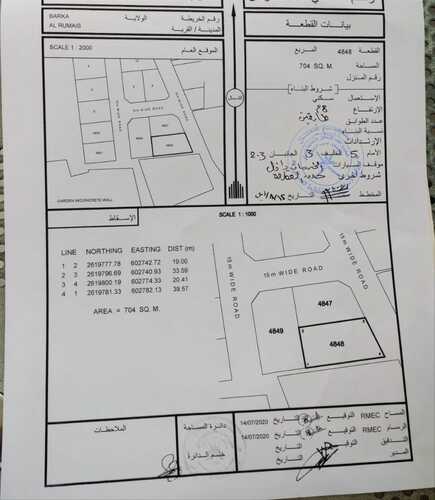 BARKA
الولاية
رقم الخريطة
AL RUMAIS
المدينة / القرية
بيانات القطعة
SCALE 1 : 2000
الموقع العام
القطعة
4848
المربع
المساحة
704 SQ. M.
رقم المنزل
شروط البناء
الإستعمال
سكني
الإرتفاع
عدد الطوابق
نسبة البناء
الإرتدادات
الأمام
5
الخلف
3
الجانبان
2-3
موقف السيارات
شروط أخرى
المخطط
التاريخ
الشمال
15m WIDE ROAD
15m WIDE ROAD
4847
4849
4848
الإسقاط
SCALE 1 : 1000
LINE NORTHING EASTING DIST (m)
1 2 2619777.78 602742.72 19.00
2 3 2619796.69 602740.93 33.59
3 4 2619800.19 602774.33 20.41
4 1 2619781.33 602782.13 39.57
AREA = 704 SQ. M.
15m WIDE ROAD
15m WIDE ROAD
4847
4849
4848
الملاحظات
دائرة المساحة
ختم الدائرة
المساح RMEC التوقيع التاريخ 14/07/2020
الرسام RMEC التوقيع التاريخ 14/07/2020
التدقيق التوقيع التاريخ
المدير